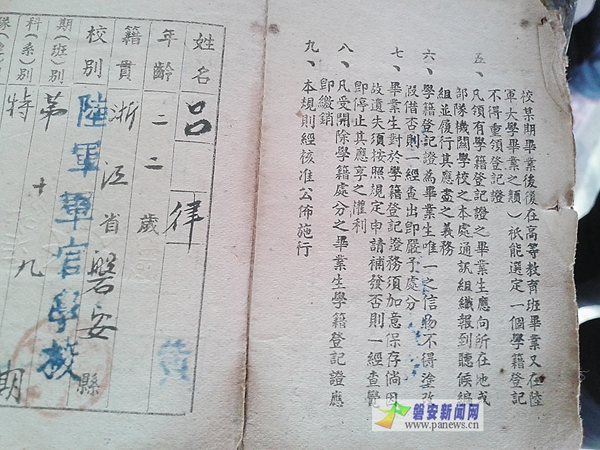 校某期畢業後復在高等教育班畢業又在陸
軍大學畢業之類)祇能選定一個學籍登記
不得重領登記證
五、凡領有學籍登記證之畢業生應向所在地或
部隊機關學校之本處通訊組織報到聽候編
組並復行其應盡之義務
六、學籍登記證為畢業生唯一之信物不得塗改
毀借否則一經查出即嚴予處分
七、畢業生對於學籍登記證務須加意保存倘因
故遺失須按照規定申請補發否則一經查覺
即停止其應享之權利
八、凡受開除學籍處分之畢業生學籍登記證應
即繳銷
九、本規則經核准公佈施行
姓名 呂律
年齡 二二歲
籍貫 浙江省磐安縣
校別 陸軍軍官學校
期(班)別 第十九期
科(系)別 特
磐安新闻网
www.panews.cn